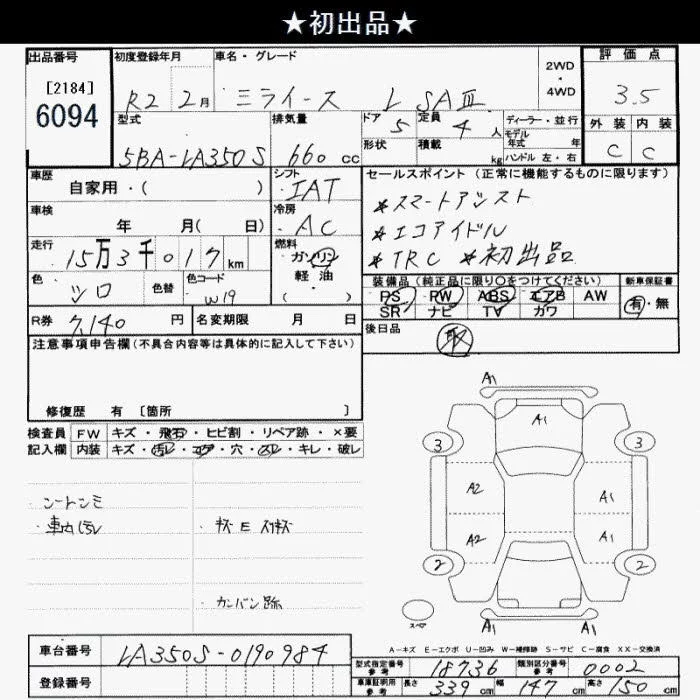 ★初出品★
出品番号 初度登録年月 車名・グレード 2WD・4WD 評価点
[2184]
6094
R2 2月 ミライース L SAⅢ 3.5
型式 排気量 ドア 5 定員 4人 ディーラー・並行 外装 内装
5BA-LA350S 660cc 形状 積載 kg モデル年式 年 ハンドル 左・右 C C
車歴 自家用・( ) シフト IAT セールスポイント(正常に機能するものに限ります)
車検 年 月( 日) 冷房 AC ★スマートアシスト
★エコアイドル
走行 15万3千017km 燃料 ガソリン 軽油 ( ) ★TRC ★初出品
色 シロ 色替 色コード W19 装備品(純正品に限り○をつけてください) 新車保証書
PS PW ABS エアB AW 有・無
R券 7,140円 名変期限 月 日 SR ナビ TV カワ
注意事項申告欄(不具合内容等は具体的に記入して下さい) 後日品 取
修復歴 有 [箇所 ]
検査員 FW キズ・飛石・ヒビ割・リペア跡・×要
記入欄 内装 キズ・汚レ・コゲ・穴・スレ・キレ・破レ
シートシミ
車内汚レ キズ E スリキズ
カンバン跡
A1
A1
3 3
A2 A1
A2 A1
2 2
スペア A1 A1
A-キズ E-エクボ U-凹み W-補修跡 S-サビ C-腐食 XX-交換済
車台番号 LA350S-0190984
型式指定番号 参考 18736 類別区分番号 参考 0002
登録番号 車庫証明用 参考 長さ 339cm 幅 147cm 高さ 150cm